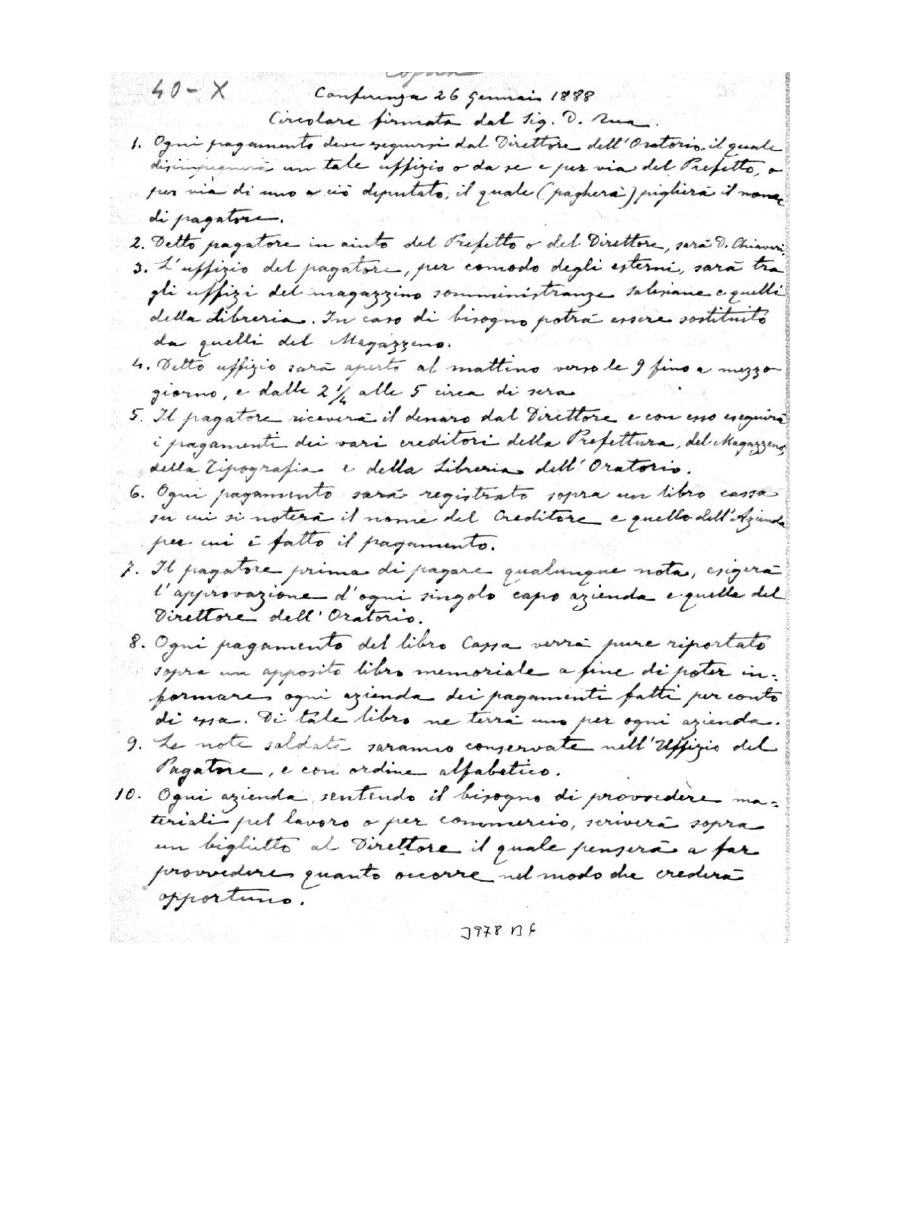 Copia
40 - X
Conferenza 26 Gennaio 1888
Circolare firmata dal Sig. D. Rua.
1. Ogni pagamento deve eseguirsi dal Direttore dell'Oratorio, il quale
disimpegnerà un tale uffizio o da se e per via del Prefetto, o
per via di uno a ciò deputato, il quale (pagherà) piglierà il nome
di pagatore.
2. Detto pagatore in aiuto del Prefetto o del Direttore, sarà D. Chiaveri.
3. L'uffizio del pagatore, per comodo degli esterni, sarà tra
gli uffizi del magazzino somministranze salesiane e quelli
della Libreria. In caso di bisogno potrà essere sostituito
da quelli del Magazzeno.
4. Detto uffizio sarà aperto al mattino verso le 9 fino a mezzo
giorno, e dalle 2 1/4 alle 5 circa di sera
5. Il pagatore riceverà il denaro dal Direttore e con esso eseguirà
i pagamenti dei vari creditori della Prefettura, del Magazzeno,
della Tipografia e della Libreria dell'Oratorio.
6. Ogni pagamento sarà registrato sopra un libro cassa
su cui si noterà il nome del Creditore e quello dell'Azienda
per cui è fatto il pagamento.
7. Il pagatore prima di pagare qualunque nota, esigerà
l'approvazione d'ogni singolo capo azienda e quelle del
Direttore dell'Oratorio.
8. Ogni pagamento del libro Cassa verrà pure riportato
sopra un apposito libro memoriale a fine di poter in=
formare ogni azienda dei pagamenti fatti per conto
di essa. Di tale libro ne terrà uno per ogni azienda.
9. Le note saldate saranno conservate nell'Uffizio del
Pagatore, e con ordine alfabetico.
10. Ogni azienda sentendo il bisogno di provvedere ma=
teriali pel lavoro o per commercio, scriverà sopra
un biglietto al Direttore il quale penserà a far
provvedere quanto occorre nel modo che crederà
opportuno.